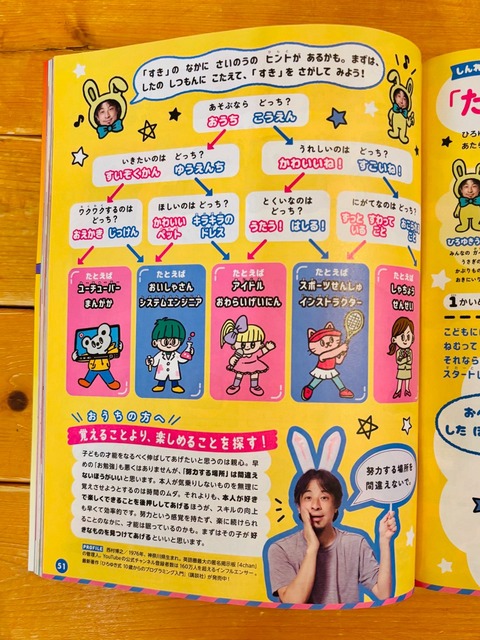 「すき」の なかに さいのうの ヒントが あるかも。まずは、
したの しつもんに こたえて、「すき」を さがして みよう!
あそぶなら どっち?
おうち こうえん
いきたいのは どっち?
すいぞくかん ゆうえんち
うれしいのは どっち?
かわいいね! すごいね!
ワクワクするのは
どっち?
おえかき じっけん
ほしいのは どっち?
かわいい
ペット
キラキラの
ドレス
とくいなのは
どっち?
うたう! はしる!
にがてなのは どっち?
ずっと すわって
いる こと
たとえば
ユーチューバー
まんがか
たとえば
おいしゃさん
システムエンジニア
たとえば
アイドル
おわらいげいにん
たとえば
スポーツせんしゅ
インストラクター
たとえば
しゃちょう
せんせい
おうちの方へ
覚えることより、楽しめることを探す!
子どもの才能をなるべく伸ばしてあげたいと思うのは親心。早
めの「お勉強」も悪くはありませんが、「努力する場所」は間違え
ないほうがいいと思います。本人が気乗りしないものを無理に
覚えさせようとするのは時間のムダ。それよりも、本人が好き
で楽しくできることを後押ししてあげるほうが、スキルの向上
も早くて効率的です。努力という感覚を持たず、楽に続けられ
ることのなかに、才能は眠っているのかも。まずはその子が好
きなものを見つけてあげるといいと思います。
努力する場所を
間違えないで。
PROFILE 西村博之/1976年、神奈川県生まれ。英語圏最大の匿名掲示板「4chan」
の管理人。YouTubeの公式チャンネル登録者数は160万人を超えるインフルエンサー。
最新著作『ひろゆき式 10歳からのプログラミング入門』(講談社)が発売中!
51
しんれ
「た
ひろゆ
あたら
ひろゆきう
みんなの
うさぎの
かぶりもの
おきにい
1 かいめ
こどもに
ねむって
それなら
スタートし
おへ
した ほ